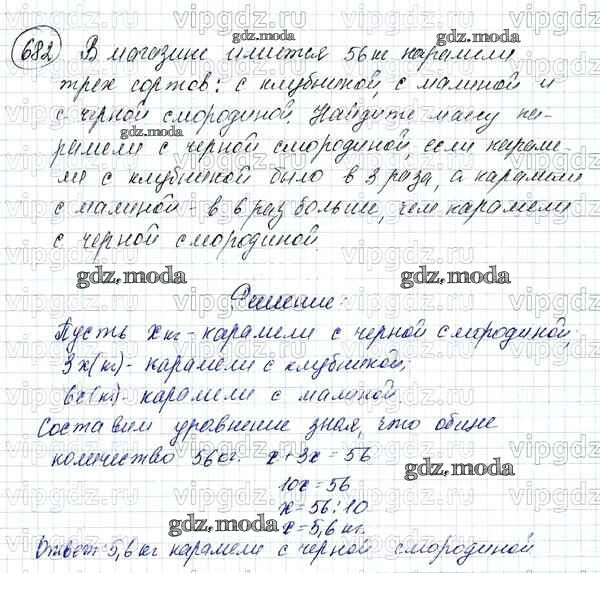 682 В магазине имется 56 кг карамели
трех сортов: с клубникой, с малиной и
с черной смородиной. Найдите массу ка-
gdz.moda
рамели с черной смородиной, если караме-
ли с клубникой было в 3 раза, а карамели
с малиной - в 6 раз больше, чем карамели
с черной смородиной.
gdz.moda gdz.moda
Решение:
Пусть x кг - карамели с черной смородиной;
3x(кг) - карамели с клубникой;
6x(кг) - карамели с малиной.
Составим уравнение зная, что общее
количество 56 кг. x + 3x = 56
gdz.moda
10x = 56
x = 56 : 10
gdz.moda
x = 5,6 кг.
Ответ: 5,6 кг карамели с черной смородиной